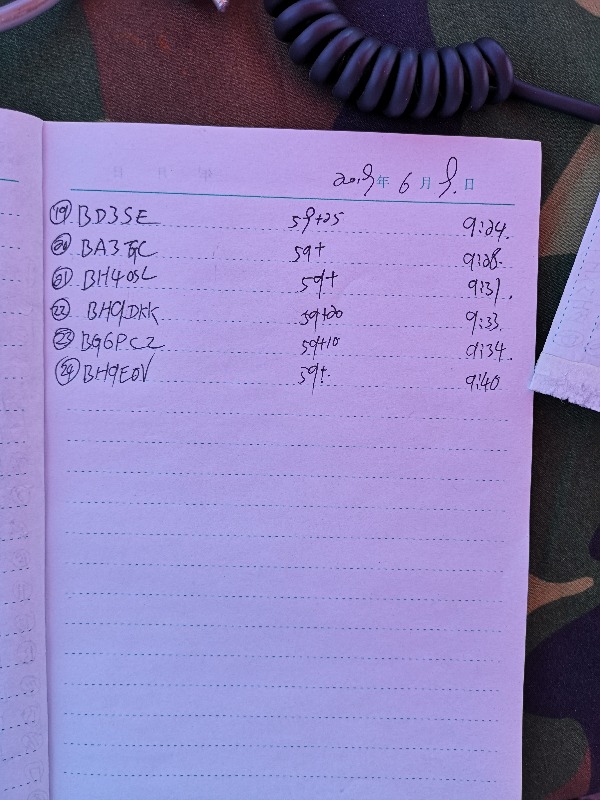 2019年 6月 9.日
⑲ BD3SE 59+25 9:24.
⑳ BA3 59+ 9:28.
㉑ BH4OSL 59+ 9:31.
㉒ BH9DKK 59+20 9:33.
㉓ BG6PCZ 59+10 9:34.
㉔ BH9EOV 59+. 9:40